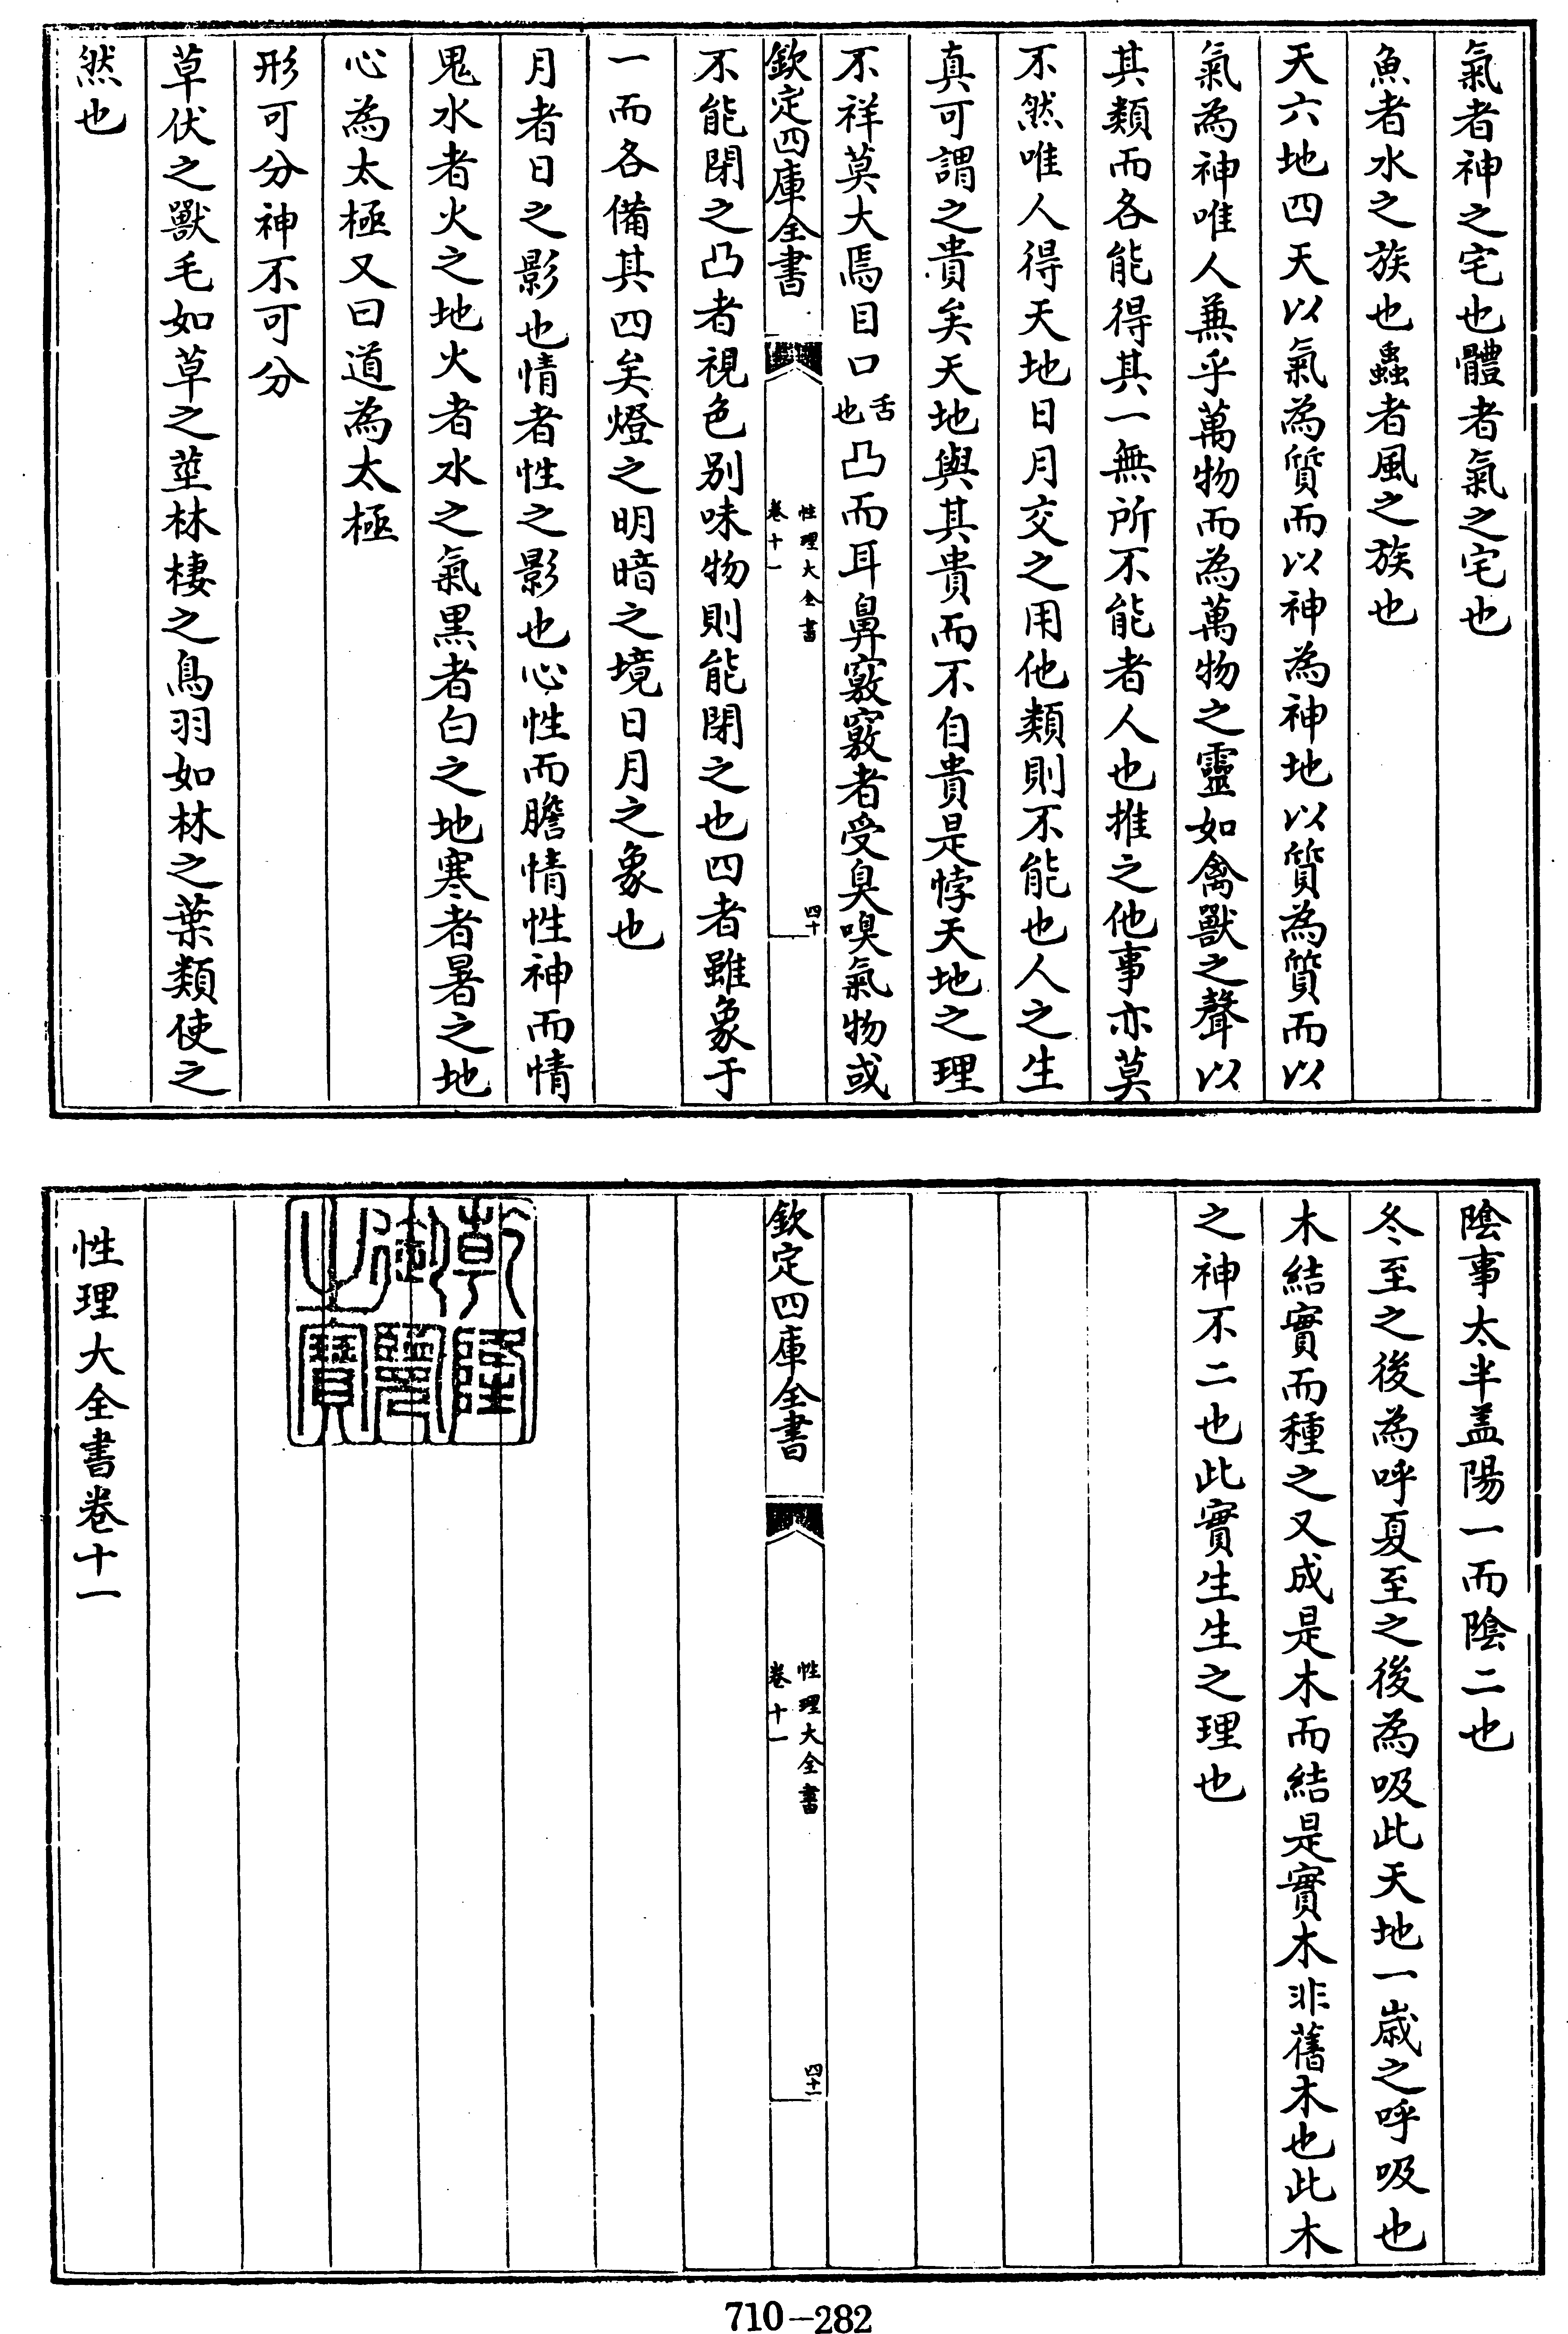 氣者神之宅也體者氣之宅也
魚者水之族也蟲者風之族也
天六地四天以氣為質而以神為神地以質為質而以
氣為神唯人兼乎萬物而為萬物之靈如禽獸之聲以
其類而各能得其一無所不能者人也推之他事亦莫
不然唯人得天地日月交之用他類則不能也人之生
真可謂之貴矣天地與其貴而不自貴是悖天地之理
不祥莫大焉目口舌也凸而耳鼻竅竅者受臭嗅氣物或
欽定四庫全書
性理大全書
卷十一
四十
不能閉之凸者視色別味物則能閉之也四者雖象于
一而各備其四矣燈之明暗之境日月之象也
月者日之影也情者性之影也心性而膽情性神而情
鬼水者火之地火者水之氣黑者白之地寒者暑之地
心為太極又曰道為太極
形可分神不可分
草伏之獸毛如草之莖林棲之鳥羽如林之葉類使之
然也
陰事太半盖陽一而陰二也
冬至之後為呼夏至之後為吸此天地一歲之呼吸也
木結實而種之又成是木而結是實木非舊木也此木
之神不二也此實生生之理也
欽定四庫全書
性理大全書
卷十一
四十一
乾隆
御覽
之寶
性理大全書卷十一
710-282